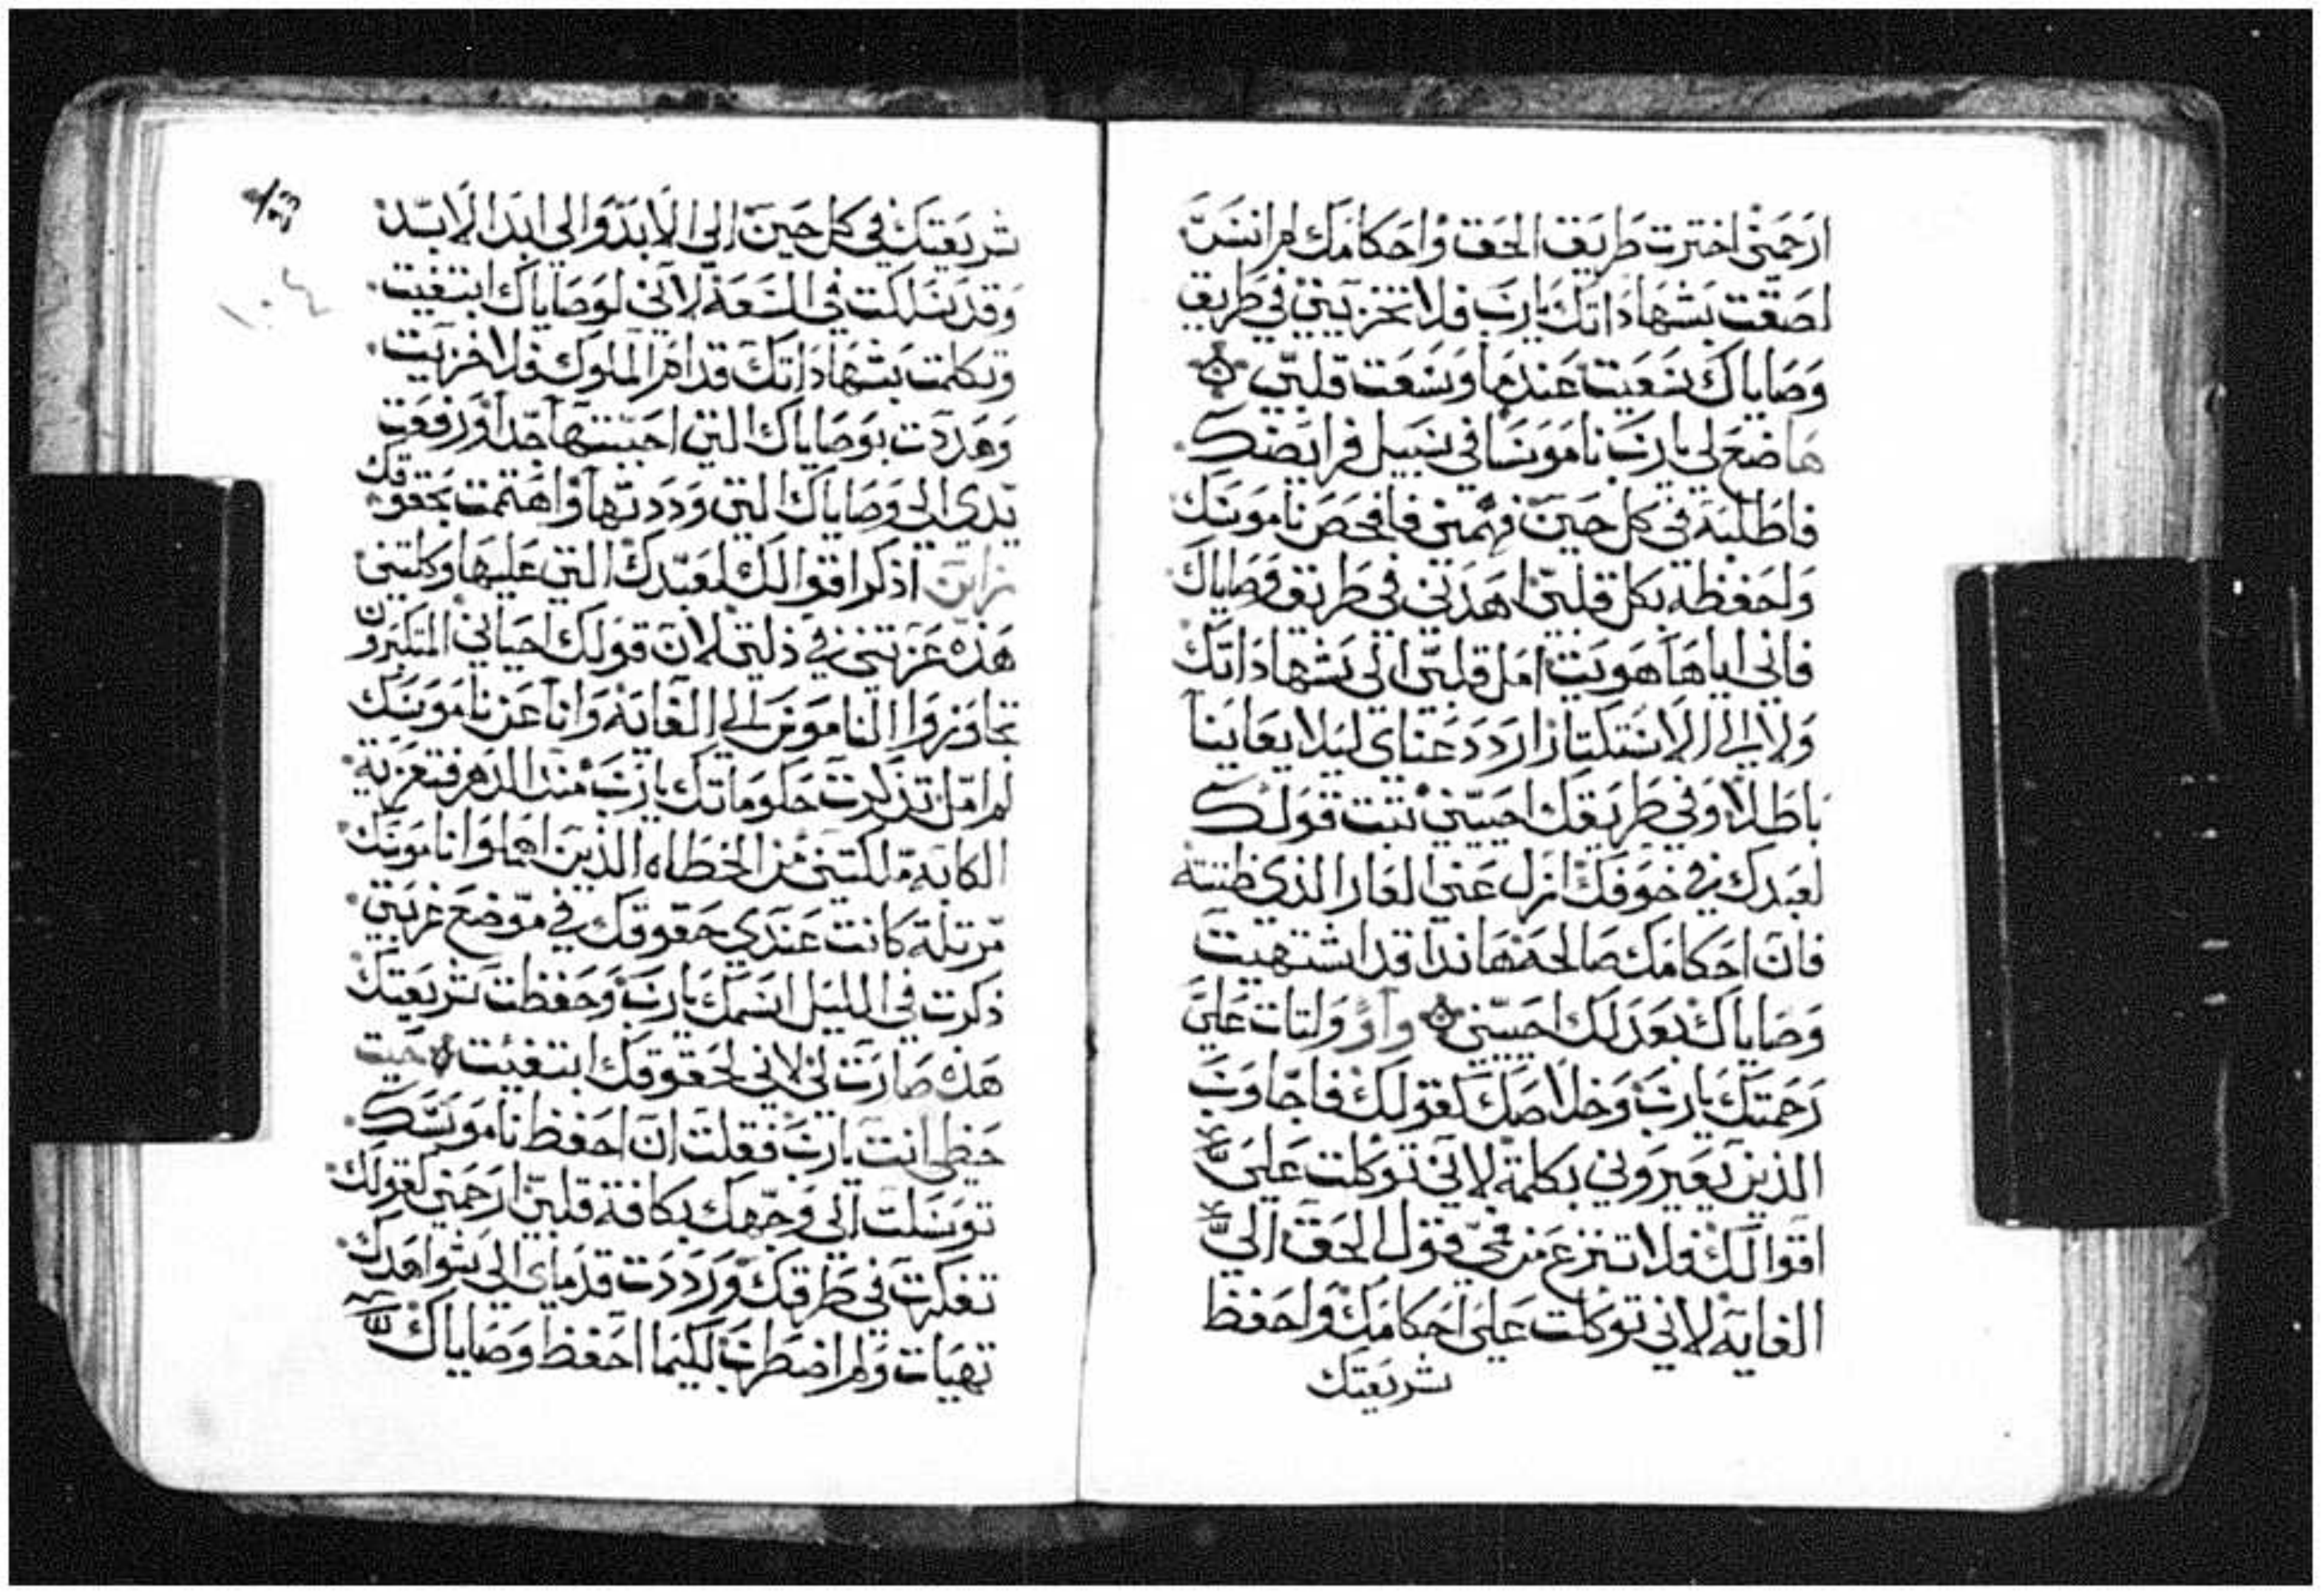 ارحمني اخترت طريق الحق واحكامك لم انسى
لصقت بشهاداتك يارب فلا تخزيني في طريق
وصاياك سعيت عندما وسعت قلبي
ها ضع لي يارب ناموسا في سبيل فرايضك
فاطلبه في كل حين فهمني فافحص ناموسك
واحفظه بكل قلبي اهدني في طريق وصاياك
فاني اياها هويت امل قلبي الي شهاداتك
ولا الي الاستكتار اردد عيناي ليلا يعاينا
باطلا وفي طريقك احييني تبت قولك
لعبدك في خوفك ازل عني العار الذي ظننته
فان احكامك صالحه هانذا قد اشتهيت
وصاياك بعدلك احييني واو ولتات علي
رحمتك يارب وخلاصك كقولك فاجاوب
الذين يعيروني بكلمة لاني توكلت علي
اقوالك فلا تنزع من في قول الحق الي
الغايه لاني توكلت علي احكامك واحفظ
شريعتك
شريعتك في كل حين الي الابد والي ابد الابد
وقد سلكت في السعة لاني لوصاياك ابتغيت
وتكلمت بشهاداتك قدام الملوك فلا خزيت
وهددت بوصاياك التي احببتها جدا ورفعت
يدي الي وصاياك التي وددتها واهتممت بحقوقك
زاين اذكر اقوالك لعبدك التي عليها وكلتني
هذه عزتني في ذلتي لان قولك احياني المتكبرون
تجاوزوا الناموس الي الغاية وانا عن ناموسك
لم امل تذكرت حكوماتك يارب منذ الدهر فتعزيت
الكابه ملكتني من الخطاه الذين اهملوا ناموسك
مرتلة كانت عندي حقوقك في موضع غربتي
ذكرت في الليل اسمك يارب وحفظت شريعتك
هذه صارت لي لاني لحقوقك ابتغيت حيت
حظي انت يارب فقلت ان احفظ ناموسك
توسلت الي وجهك بكافة قلبي ارحمني كقولك
تفكرت في طرقك ورددت قدماي الي شواهدك
تهيات ولم اضطرب لكيما احفظ وصاياك
١٠٤